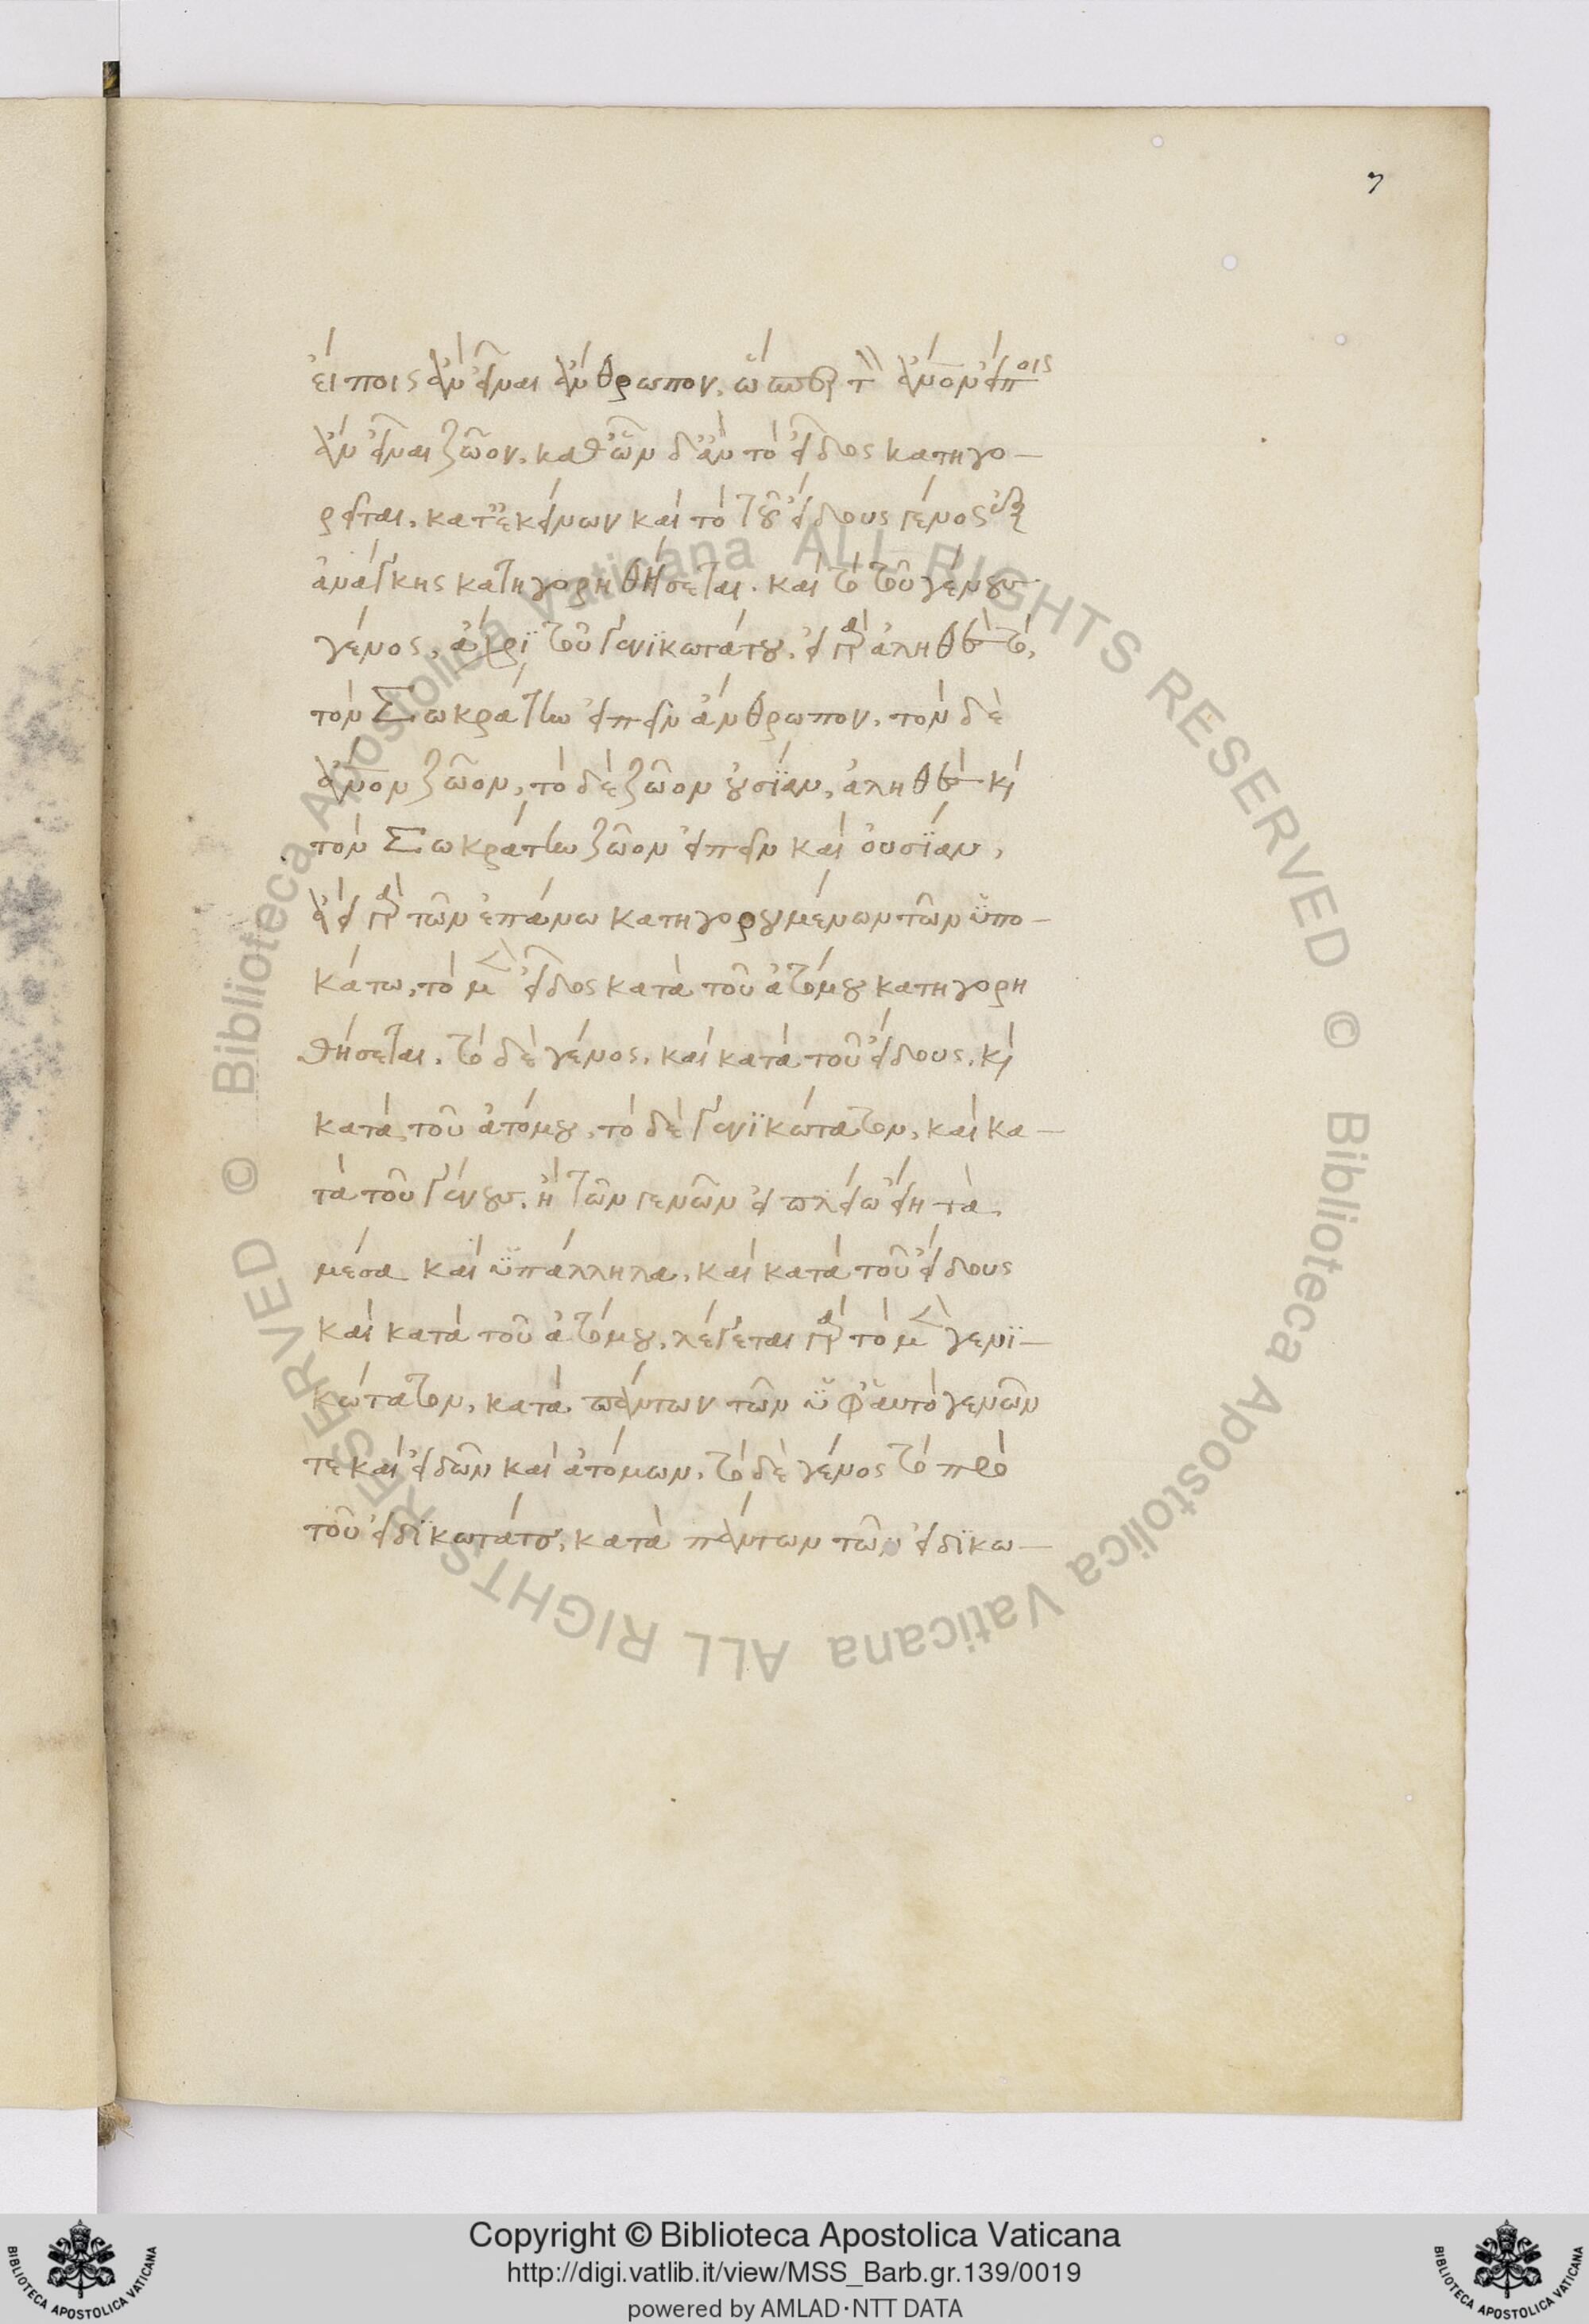 7
εἴποις ἂν εἶναι ἄνθρωπον, ὥσπερ τὸν ἄνον εἴποις
ἂν εἶναι ζῶον. καθ' ὧν δ' ἂν τὸ εἶδος κατηγο-
ρεῖται, κατ' ἐκείνων καὶ τὸ τοῦ εἴδους γένος ἐξ
ἀνάγκης κατηγορηθήσεται. καὶ τὸ τοῦ γένους
γένος, ἄχρι τοῦ γενικωτάτου. εἰ γὰρ ἀληθὲς τὸ,
τὸν Σωκράτην εἰπεῖν ἄνθρωπον, τὸν δὲ
ἄνον ζῶον, τὸ δὲ ζῶον οὐσίαν, ἀληθὲς καὶ
τὸν Σωκράτην ζῶον εἰπεῖν καὶ οὐσίαν,
ἀεὶ γὰρ τῶν ἐπάνω κατηγορουμένων τῶν ὑπο-
κάτω, τὸ μὲν εἶδος κατὰ τοῦ ἀτόμου κατηγορη
θήσεται. τὸ δὲ γένος, καὶ κατὰ τοῦ εἴδους, καὶ
κατὰ τοῦ ἀτόμου, τὸ δὲ γενικώτατον, καὶ κα-
τὰ τοῦ γένους. ἢ τῶν γενῶν εἰ πλείω εἴη τὰ
μέσα καὶ ὑπάλληλα, καὶ κατὰ τοῦ εἴδους
καὶ κατὰ τοῦ ἀτόμου. λέγεται γὰρ τὸ μὲν γενι-
κώτατον, κατὰ πάντων τῶν ὑφ' αὑτὸ γενῶν
τε καὶ εἰδῶν καὶ ἀτόμων. τὸ δὲ γένος τὸ πρὸ
τοῦ εἰδικωτάτου, κατὰ πάντων τῶν εἰδικω-
© Biblioteca Apostolica Vaticana ALL RIGHTS RESERVED © Biblioteca Apostolica Vaticana ALL RIGHTS RESERVED
Copyright © Biblioteca Apostolica Vaticana
http://digi.vatlib.it/view/MSS_Barb.gr.139/0019
powered by AMLAD·NTT DATA
BIBLIOTECA APOSTOLICA VATICANA
BIBLIOTECA APOSTOLICA VATICANA